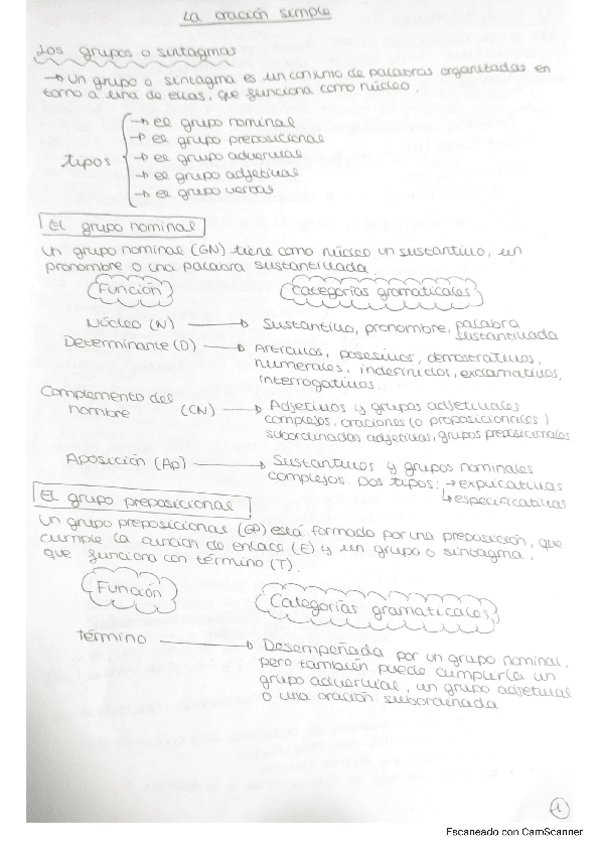 La oración simple
Los grupos o sintagmas
→ Un grupo o sintagma es un conjunto de palabras organizadas en
torno a una de ellas, que funciona como núcleo.
→ el grupo nominal
→ el grupo preposicional
tipos → el grupo adverbial
→ el grupo adjetival
→ el grupo verbal
El grupo nominal
Un grupo nominal (GN) tiene como núcleo un sustantivo, un
pronombre o una palabra sustantivada
Función Categorías gramaticales
Núcleo (N) → Sustantivo, pronombre, palabra
sustantivada
Determinante (D) → Artículos, posesivos, demostrativos,
numerales, indefinidos, exclamativos,
interrogativos.
Complemento del
nombre (CN) → Adjetivos y grupos adjetivales
complejos, oraciones (o proposicionales)
subordinadas adjetivas, grupos preposicionales
Aposición (Ap) → Sustantivos y grupos nominales
complejos Dos tipos: → explicativas
↳ especificativas
El grupo preposicional
Un grupo preposicional (GP) está formado por una preposición, que
cumple la función de enlace (E) y un grupo o sintagma,
que funciona con término (T).
Función
Categorías gramaticales
término → Desempeñada por un grupo nominal,
pero también puede cumplirla un
grupo adverbial, un grupo adjetival
o una oración subordinada
1
Escaneado con CamScanner